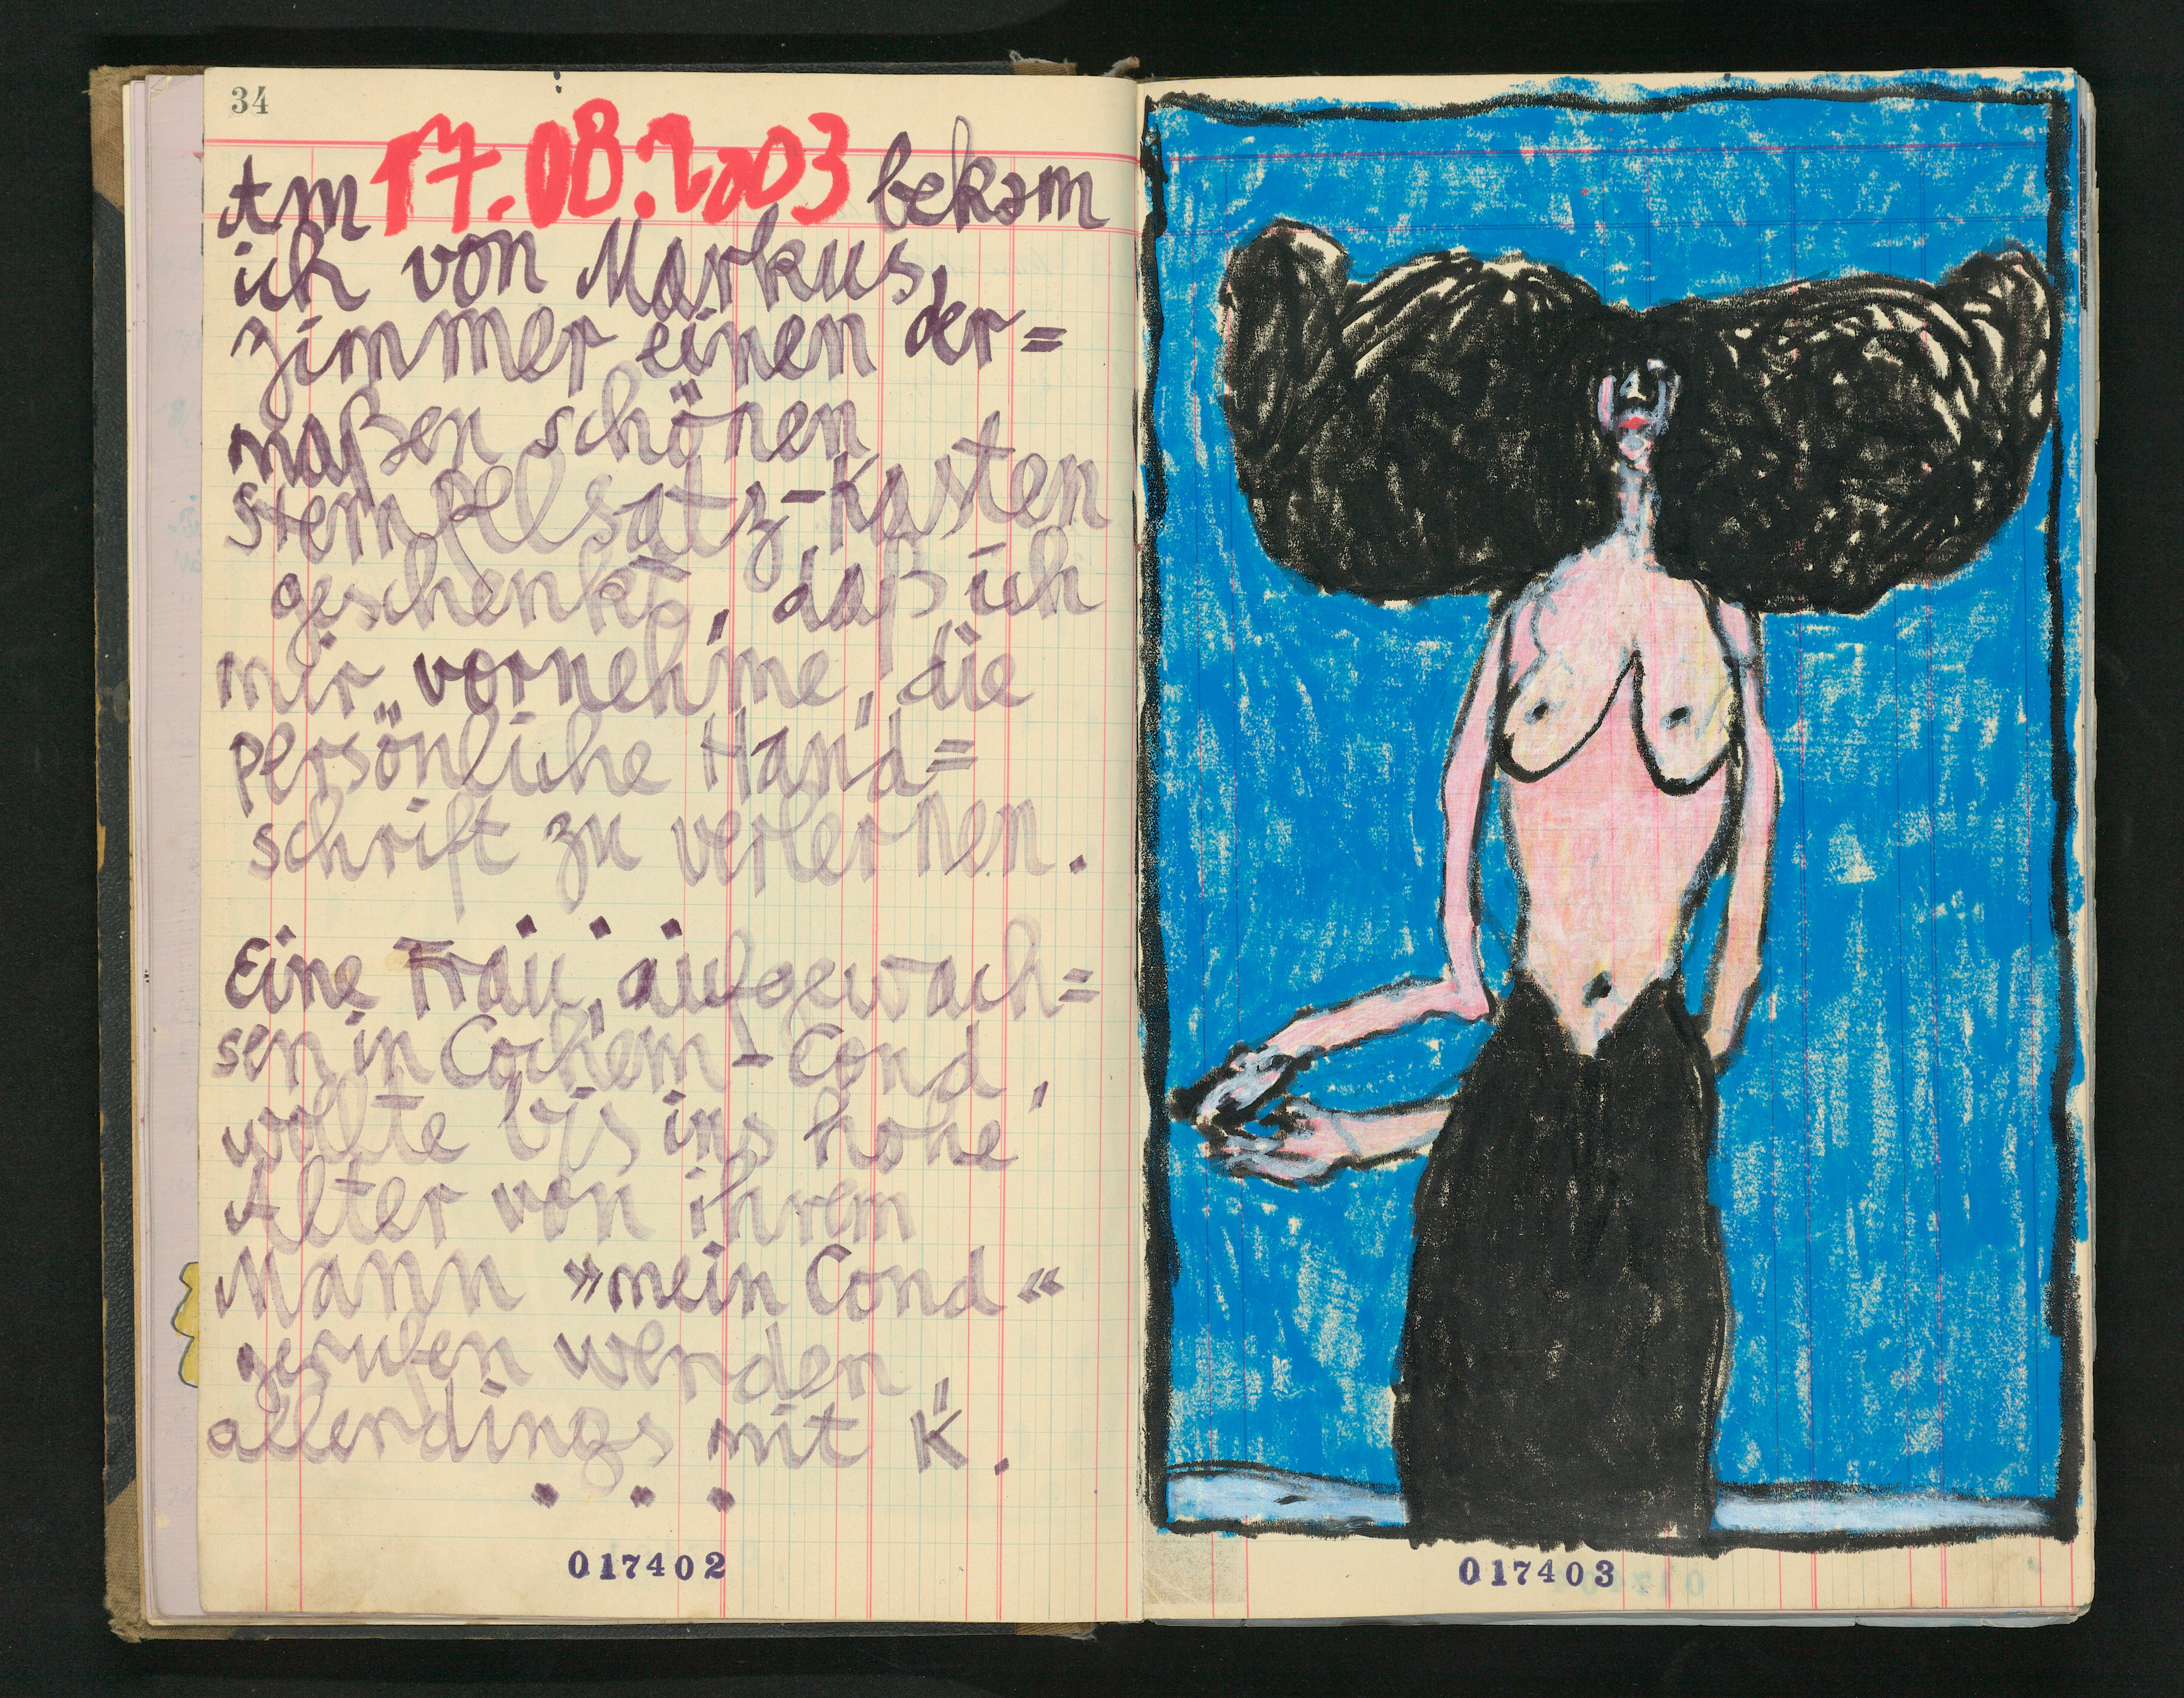 34
Am 17.08.2003 bekam
ich von Markus,
zimmer einen der=
maßen schönen
Stempelsatz-Kasten
geschenkt, daß ich
mir vornehme, die
persönliche Hand=
schrift zu verlernen.
Eine Frau, aufgewach=
sen in Cochem-Cond,
wollte bis ins hohe
Alter von ihrem
Mann »mein Cond«
gerufen werden,
allerdings mit K.
017402
017403